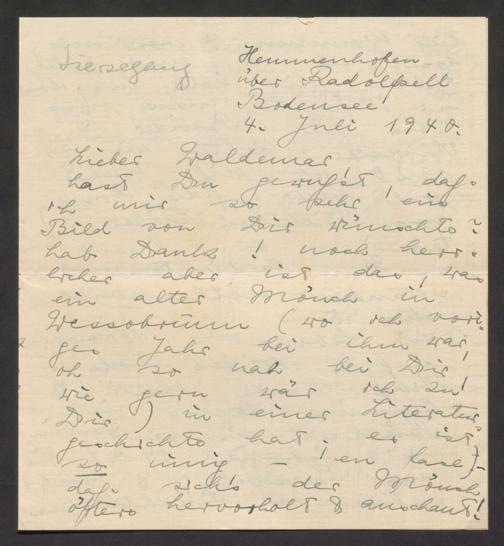 Liersegang
Hemmenhofen
über Radolfzell
Bodensee
4. Juli 1940.
Lieber Waldemar!
hast Du gewußt, daß
ich mir so sehr ein
Bild von Dir wünschte?
hab Dank! noch herr-
licher aber ist das, was
ein alter Mönch in
Wessobrunn (wo ich vori-
ges Jahr bei ihm war,
oh so nah bei Dir!
wie gern wär ich zu
Dir) in einer Literatur-
geschichte hat: er ist
so innig – ! en face, –
daß sich's der Mönch
öfters hervorholt & anschaut!